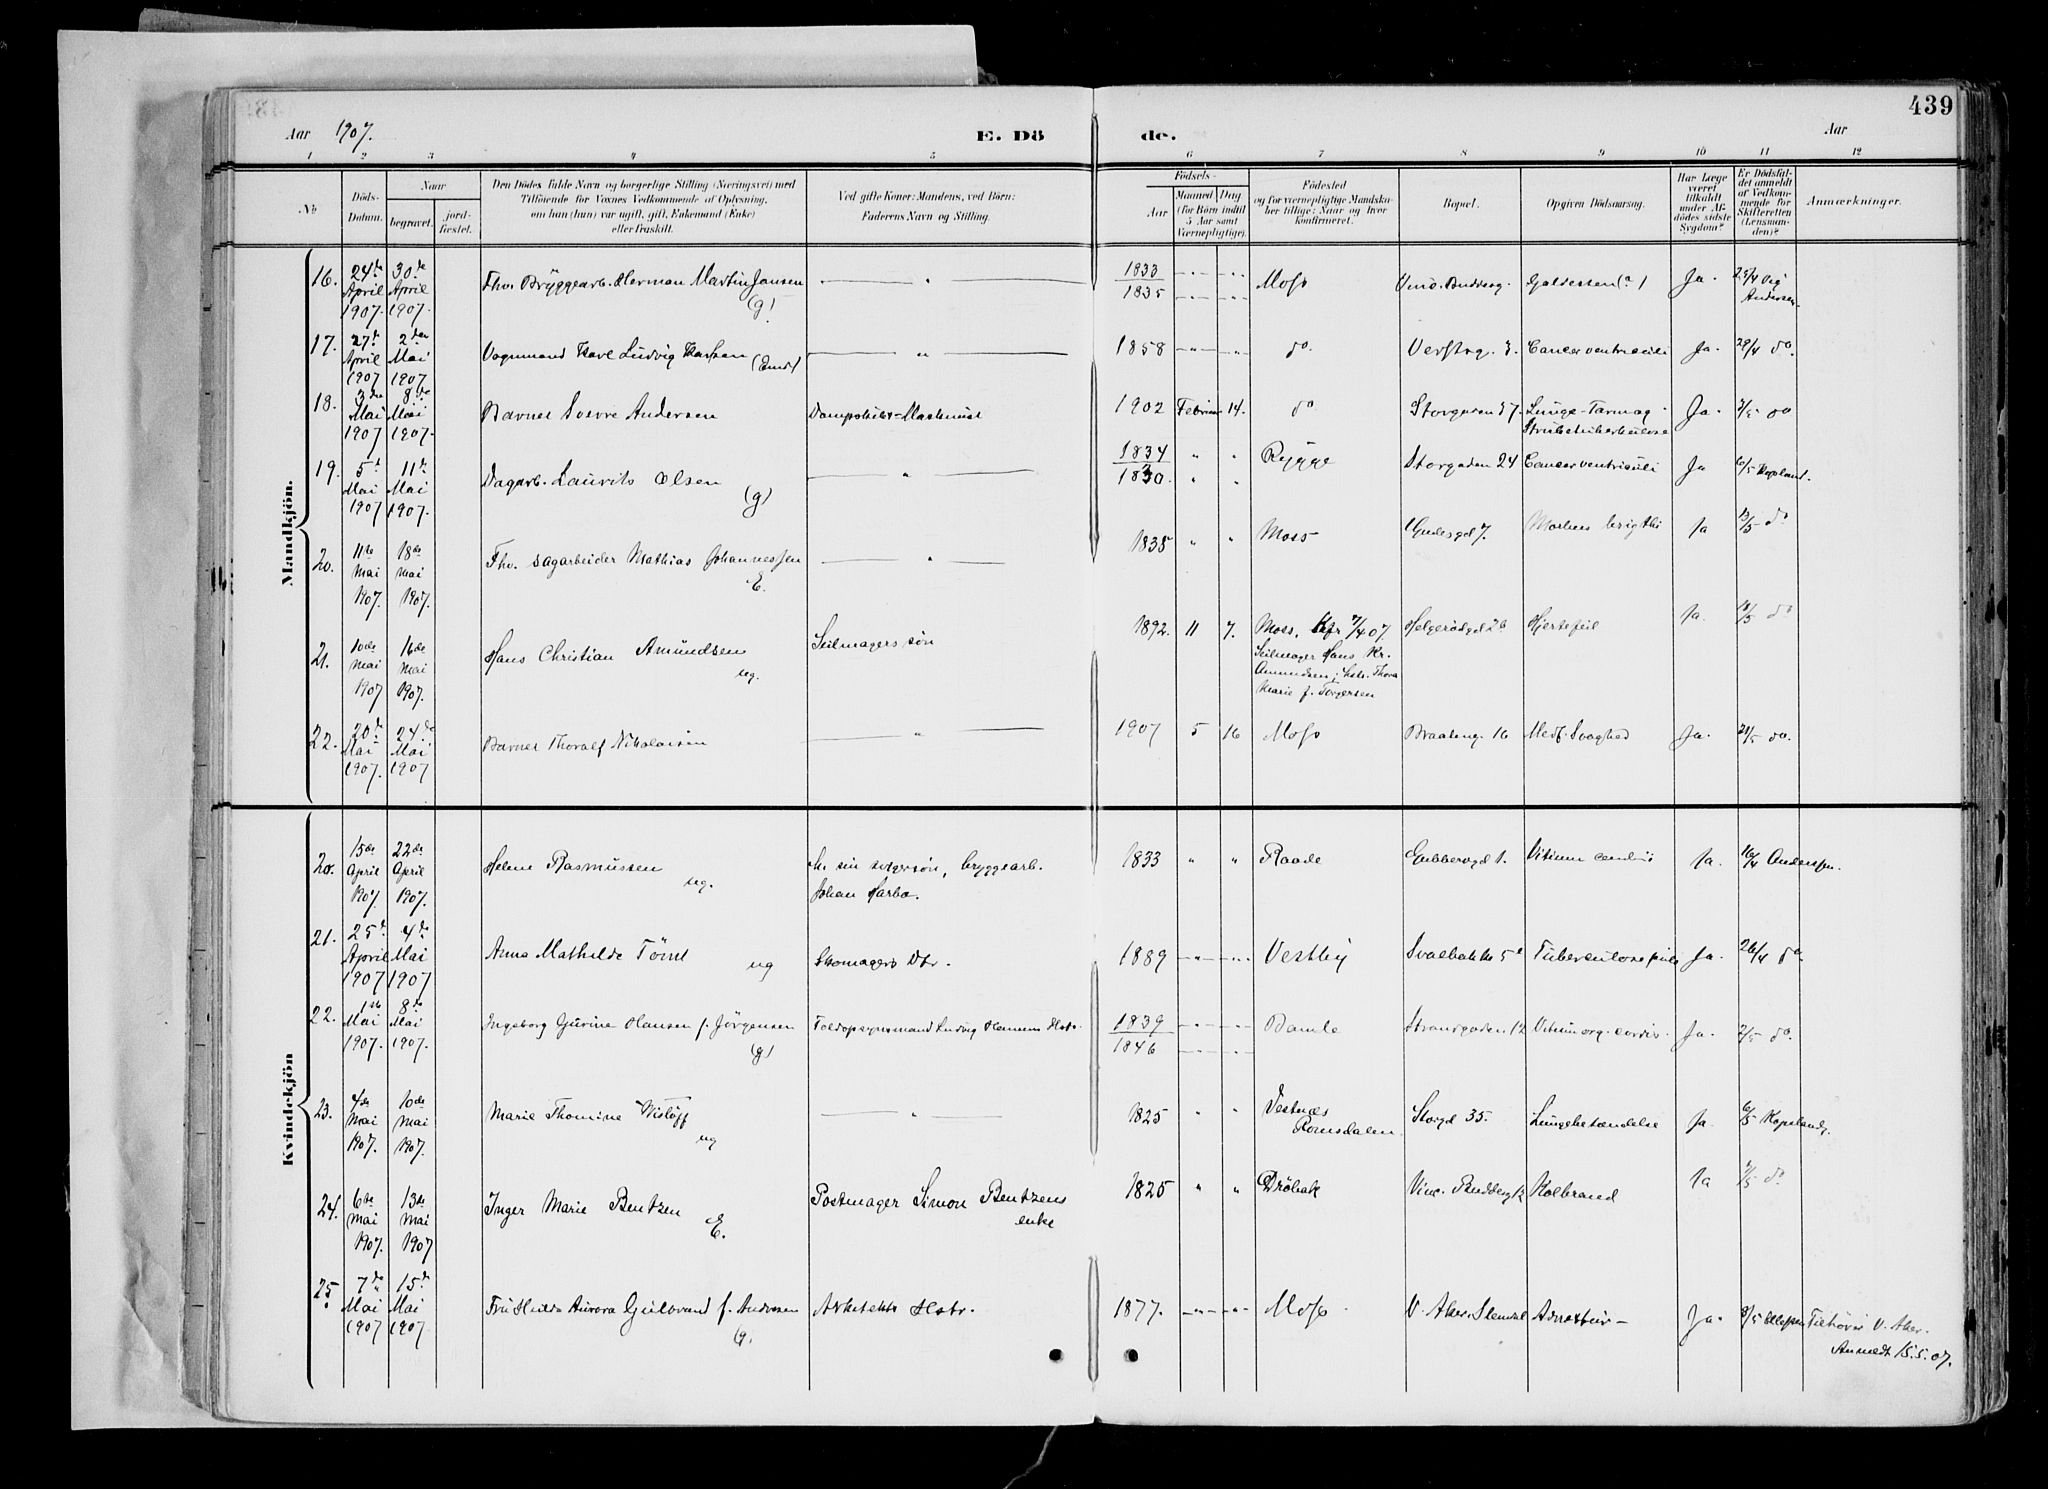 439
Aar 1907. E. Dö de. Aar
1 2 3 4 5 6 7 8 9 10 11 12
No
Döds-Datum.
Naar
begravet.
jord-fæstet.
Den Dödes fulde Navn og borgerlige Stilling (Næringsvei) med
Tilföiende for Voxnes Vedkommende af Oplysning,
om han (hun) var ugift, gift, Enkemand (Enke)
eller fraskilt.
Ved gifte Koner: Mandens, ved Börn:
Faderens Navn og Stilling.
Födsels-
Aar
Maaned Dag
(for Börn indtil
5 Aar samt
Værnepligtige).
Födested
og for værnepligtige Mandska-
ber tillige: Naar og hvor
konfirmeret.
Bopæl.
Opgiven Dödsaarsag.
Har Læge
været
tilkaldt
under Af-
dödes sidste
Sygdom?
Er Dödsfal-
det anmeldt
af Vedkom-
mende for
Skifteretten
(Lensman-
den)?
Anmærkninger.
Mandkjön.
16. 24de April 1907. 30de April 1907. Fhv. Bryggearb. Herman Martin Jansen (g) — " — 1833 / 1835 Moss Vinc. Budbergs. Galdesten (?) Ja. 25/4 Vig Andersen
17. 27de April 1907 2den Mai 1907 Vognmand Karl Ludvig Karlsen (Emd) — " — 1858 do. Verftsg. 3. Cancer ventriculi Ja. 29/4 do.
18. 3die Mai 1907 8de Mai 1907. Barnet Sverre Andersen Dampskibs-Maskinist 1902 Februar 14. do. Storgaden 57. Lunge-Tarmog-Strubetuberkulose Ja. 3/5 do
19. 5te Mai 1907 11te Mai 1907. Dagarb. Laurits Olsen (g) — " — 1834 / 1830. Rygge Storgaden 24 Cancer ventriculi Ja 6/5 Kopland.
20. 11te Mai 1907. 18de Mai 1907. Fhv. sagarbeider Mathias Johannessen E. — " — 1835 " " Moss Gudesgd 7. Morbus brigthi Ja 13/5 do
21. 10de Mai 1907 16de Mai 1907. Hans Christian Amundsen ug. Seilmagers søn 1892. 11 7. Moss, Kfr 7/4 07. Helgerödgd 26 Hjertefeil Ja. 10/5 do
Seilmager Hans Kr.
Amundsen; hstr. Thora
Marie f. Torgersen
22. 20de Mai 1907. 24de Mai 1907 Barnet Thoralf Nikolaisen — " — 1907 5 16 Moss Braateng. 16 Medf. Svaghed Ja. 21/5 do.
Kvindekjön
20. 15de April 1907. 22de April 1907. Helene Rasmussen ug. h. sin svigersøn, bryggearb.
Johan Harbo. 1833 " " Raade Gubberogd 1. Vitium cordis Ja. 16/4 Anderssen.
21. 25de April 1907 4de Mai 1907 Anna Mathilde Tömt ug Skomagers Dtr. 1889 Vestby Svaebakke 5 Tuberculose pulm Ja. 26/4 do.
22. 1ste Mai 1907. 8de Mai 1907. Ingeborg Gurine Hansen f. Jörgensen (g) Toldopsynsmand Ludvig Hansens Hstr. 1839 / 1846 Bamle Strandgaden 12 Vitium org. cordis. Ja. 2/5 do.
23. 4de Mai 1907. 10de Mai 1907. Marie Thomine Wislöff ug — " — 1825 " " Vestnæs Romsdalen. Storgd 35. Lungebetændelse Ja. 6/5 Kopland.
24. 6te Mai 1907. 13de Mai 1907 Inger Marie Bentzen E. Postmager Simon Bentzens
enke 1825 " " Dröbak Vinc. Budberg 12 Kolbrand Ja 7/5 do
25. 7de Mai 1907 15de Mai 1907 Fru Hulda Aurora Gulbrand f. Andersen g. Arkitekts Hstr. 1877. Moss V. Aker. Ja. 8/5 Tilhörer V. Aker.
Anmeldt 15.5.07.